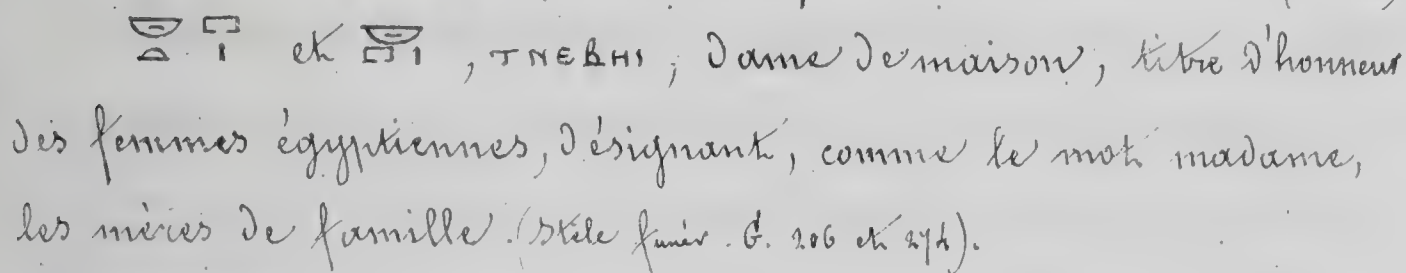 𓎟𓏏 𓉐𓏤 et 𓎟𓉐𓏤, ⲧⲛⲉⲃⲏⲓ, Dame de maison, titre d'honneur
des femmes égyptiennes, désignant, comme le mot madame,
les mères de famille. (Stèle funér. G. 206 et 274).